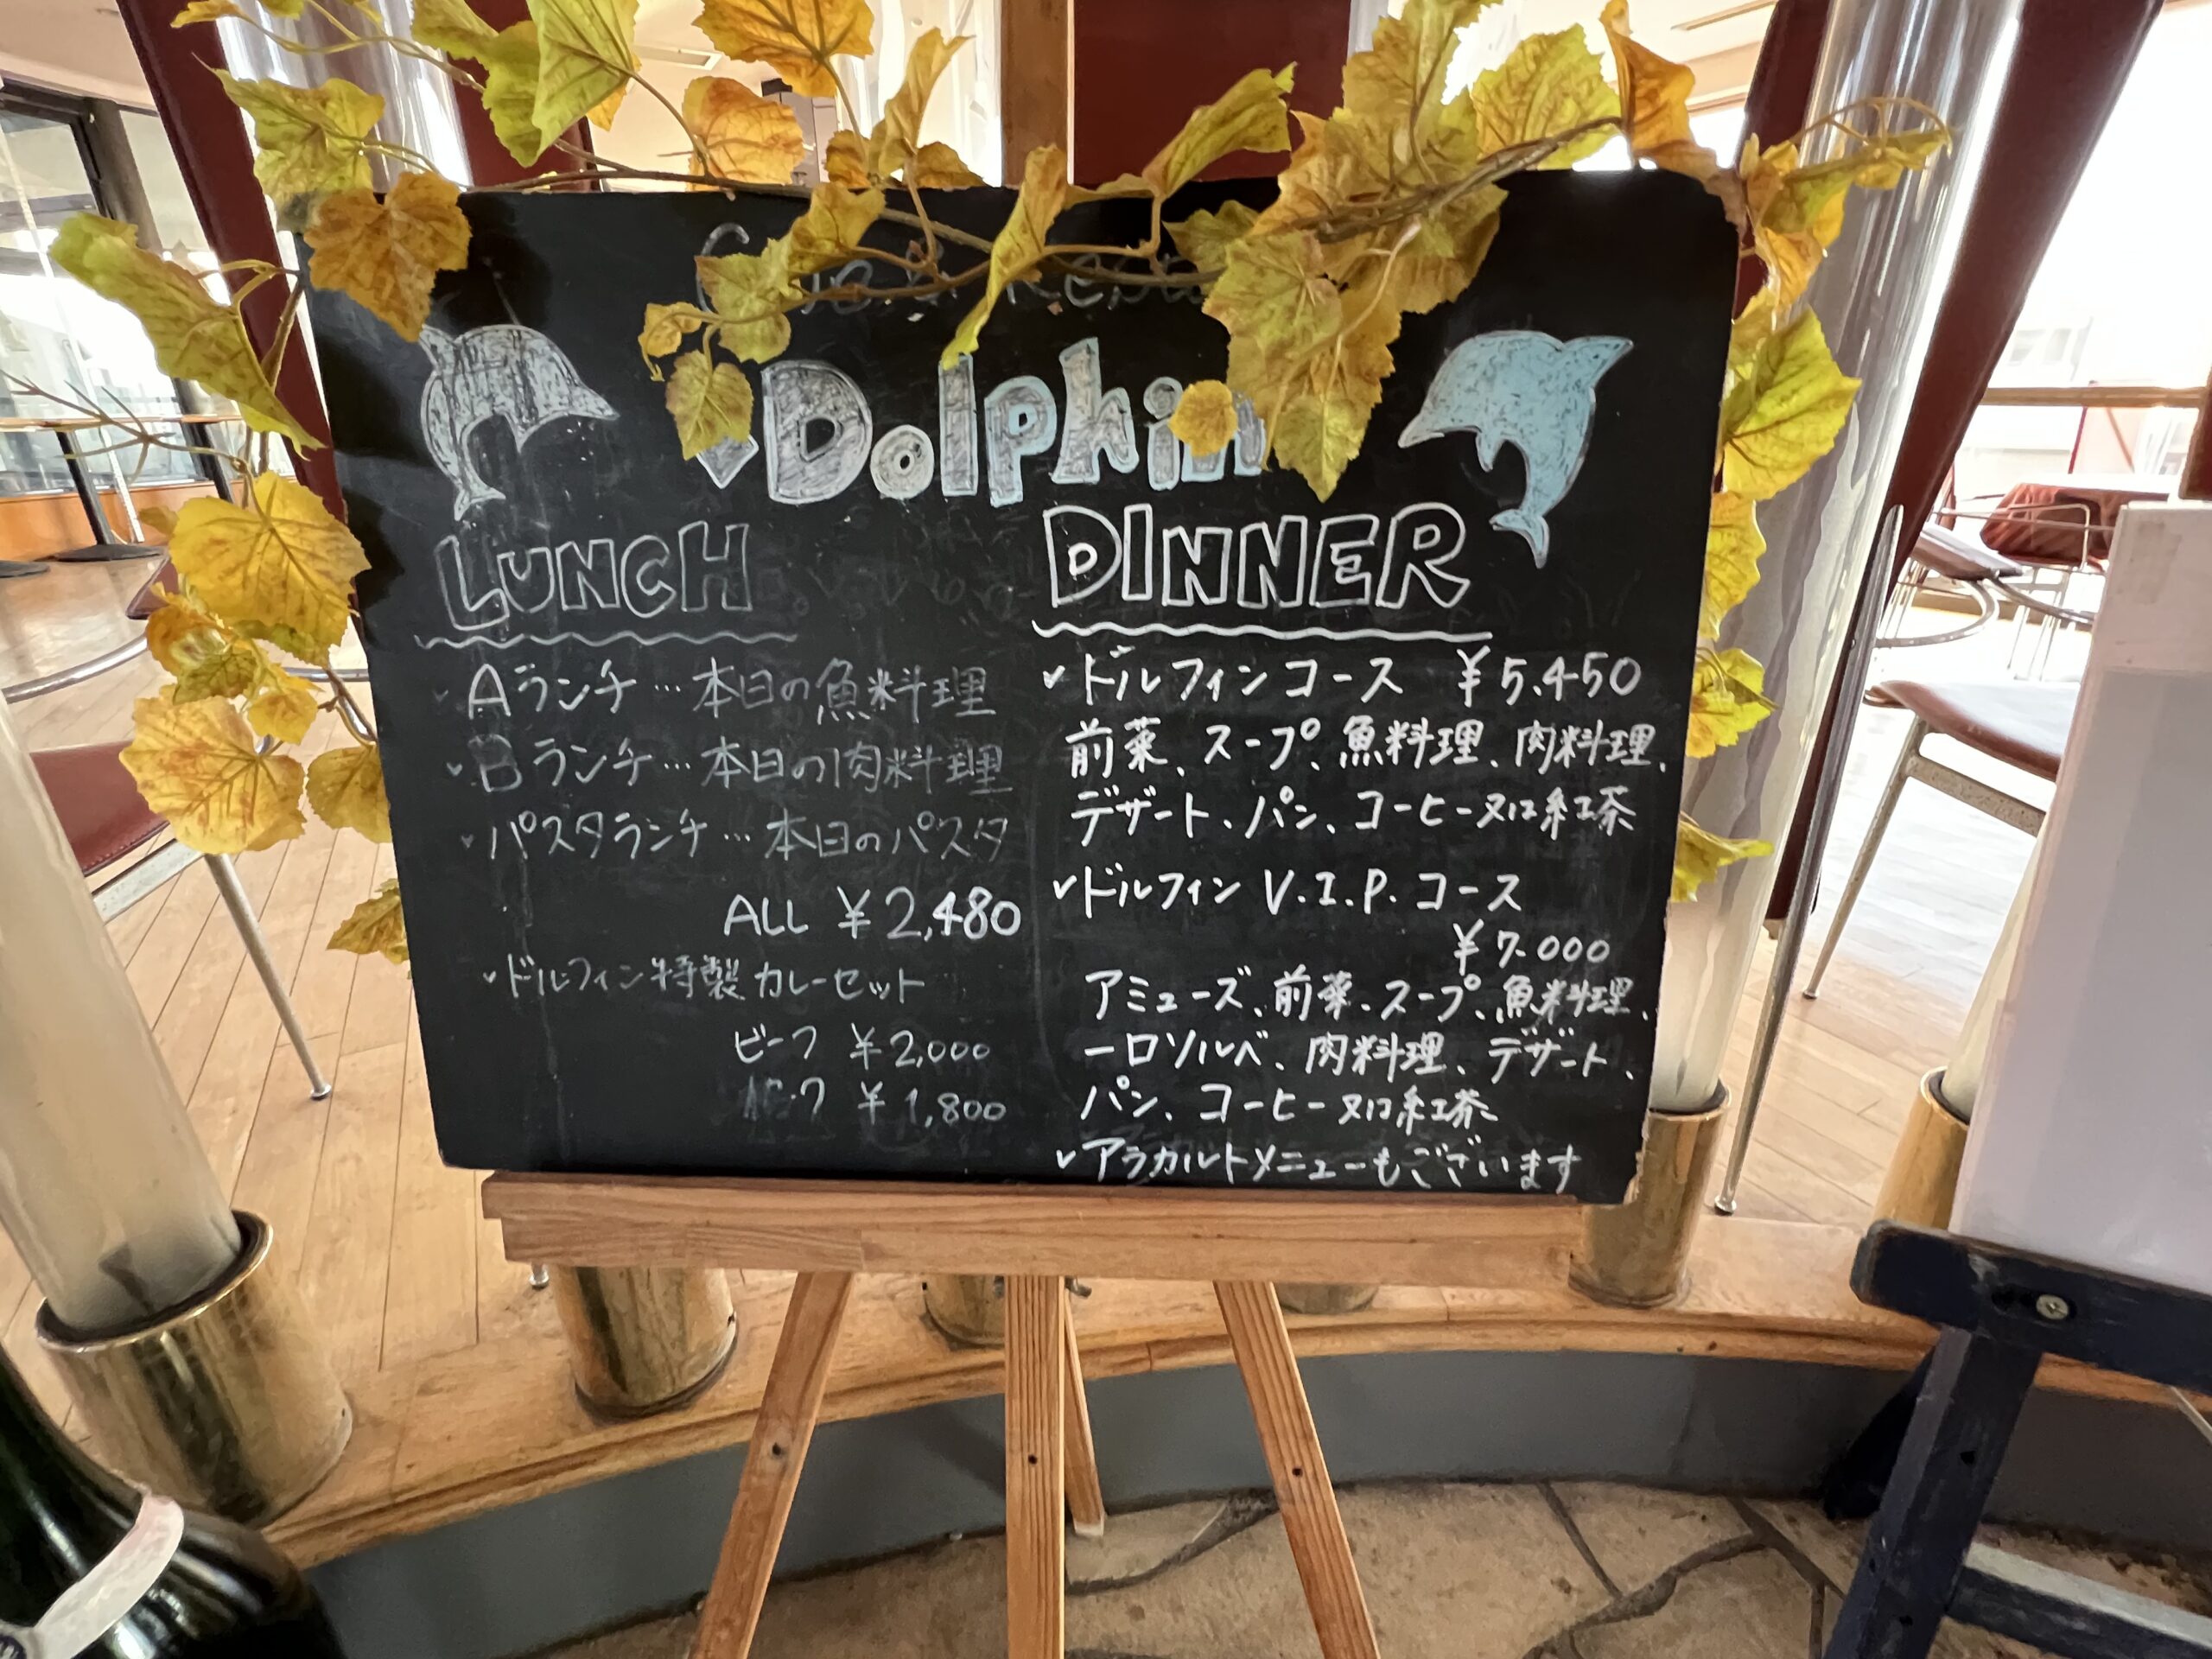 Dolphin
LUNCH
Aランチ…本日の魚料理
Bランチ…本日の肉料理
パスタランチ…本日のパスタ
ALL ¥2,480
ドルフィン特製カレーセット
ビーフ ¥2,000
¥1,800
DINNER
ドルフィンコース ¥5.450
前菜、スープ、魚料理、肉料理、
デザート、パン、コーヒー又は紅茶
ドルフィンV.I.P.コース
¥7.000
アミューズ、前菜、スープ、魚料理、
一口ソルベ、肉料理、デザート、
パン、コーヒー又は紅茶
アラカルトメニューもございます